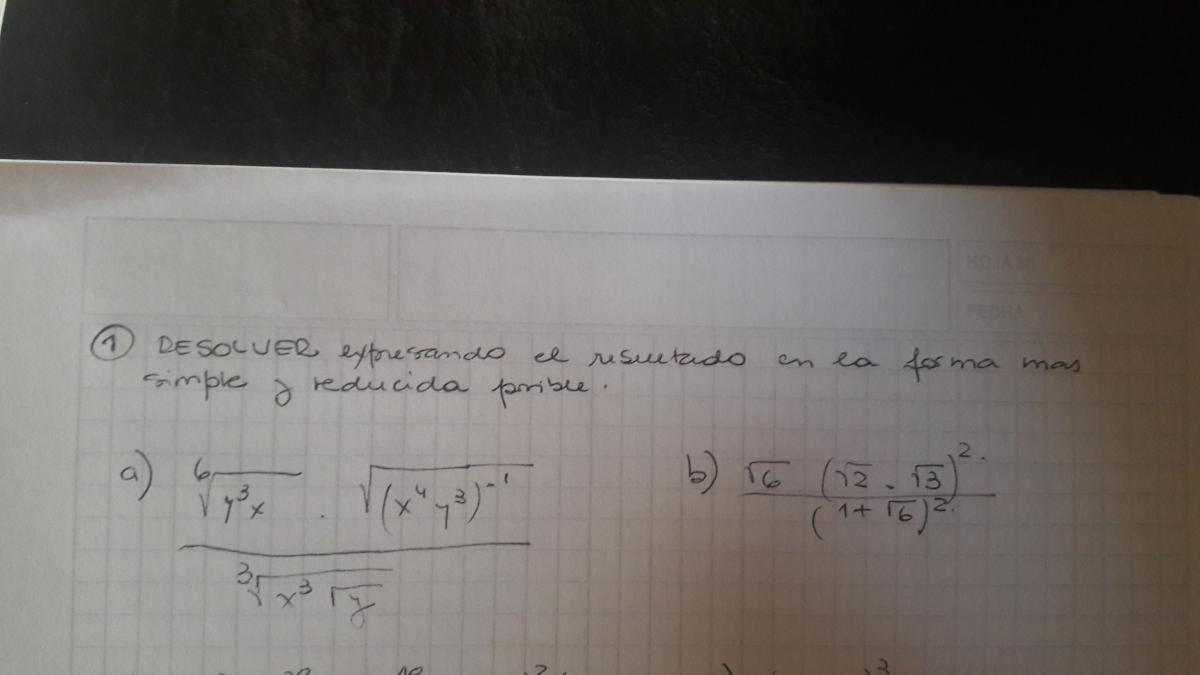 HOJA Nº
FECHA
① RESOLVER expresando el resultado en la forma mas
simple y reducida posible.
a) ⁶√(y³x) . √((x⁴y³)⁻¹) / ³√(x³√y)
b) √6 (√2 - √3)². / (1+√6)².